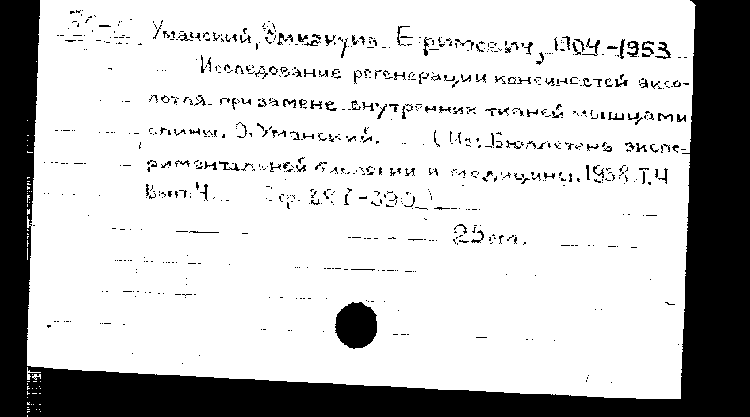 Уманский, Эммануил Ефимович, 1904-1953
Исследование регенерации конечностей аксо-
лотля при замене внутренних тканей мышцами
спины. Э. Уманский. (Из: Бюллетень экспе-
риментальной биологии и медицины. 1938. Т. 4
Вып. 4. Стр. 387-390)